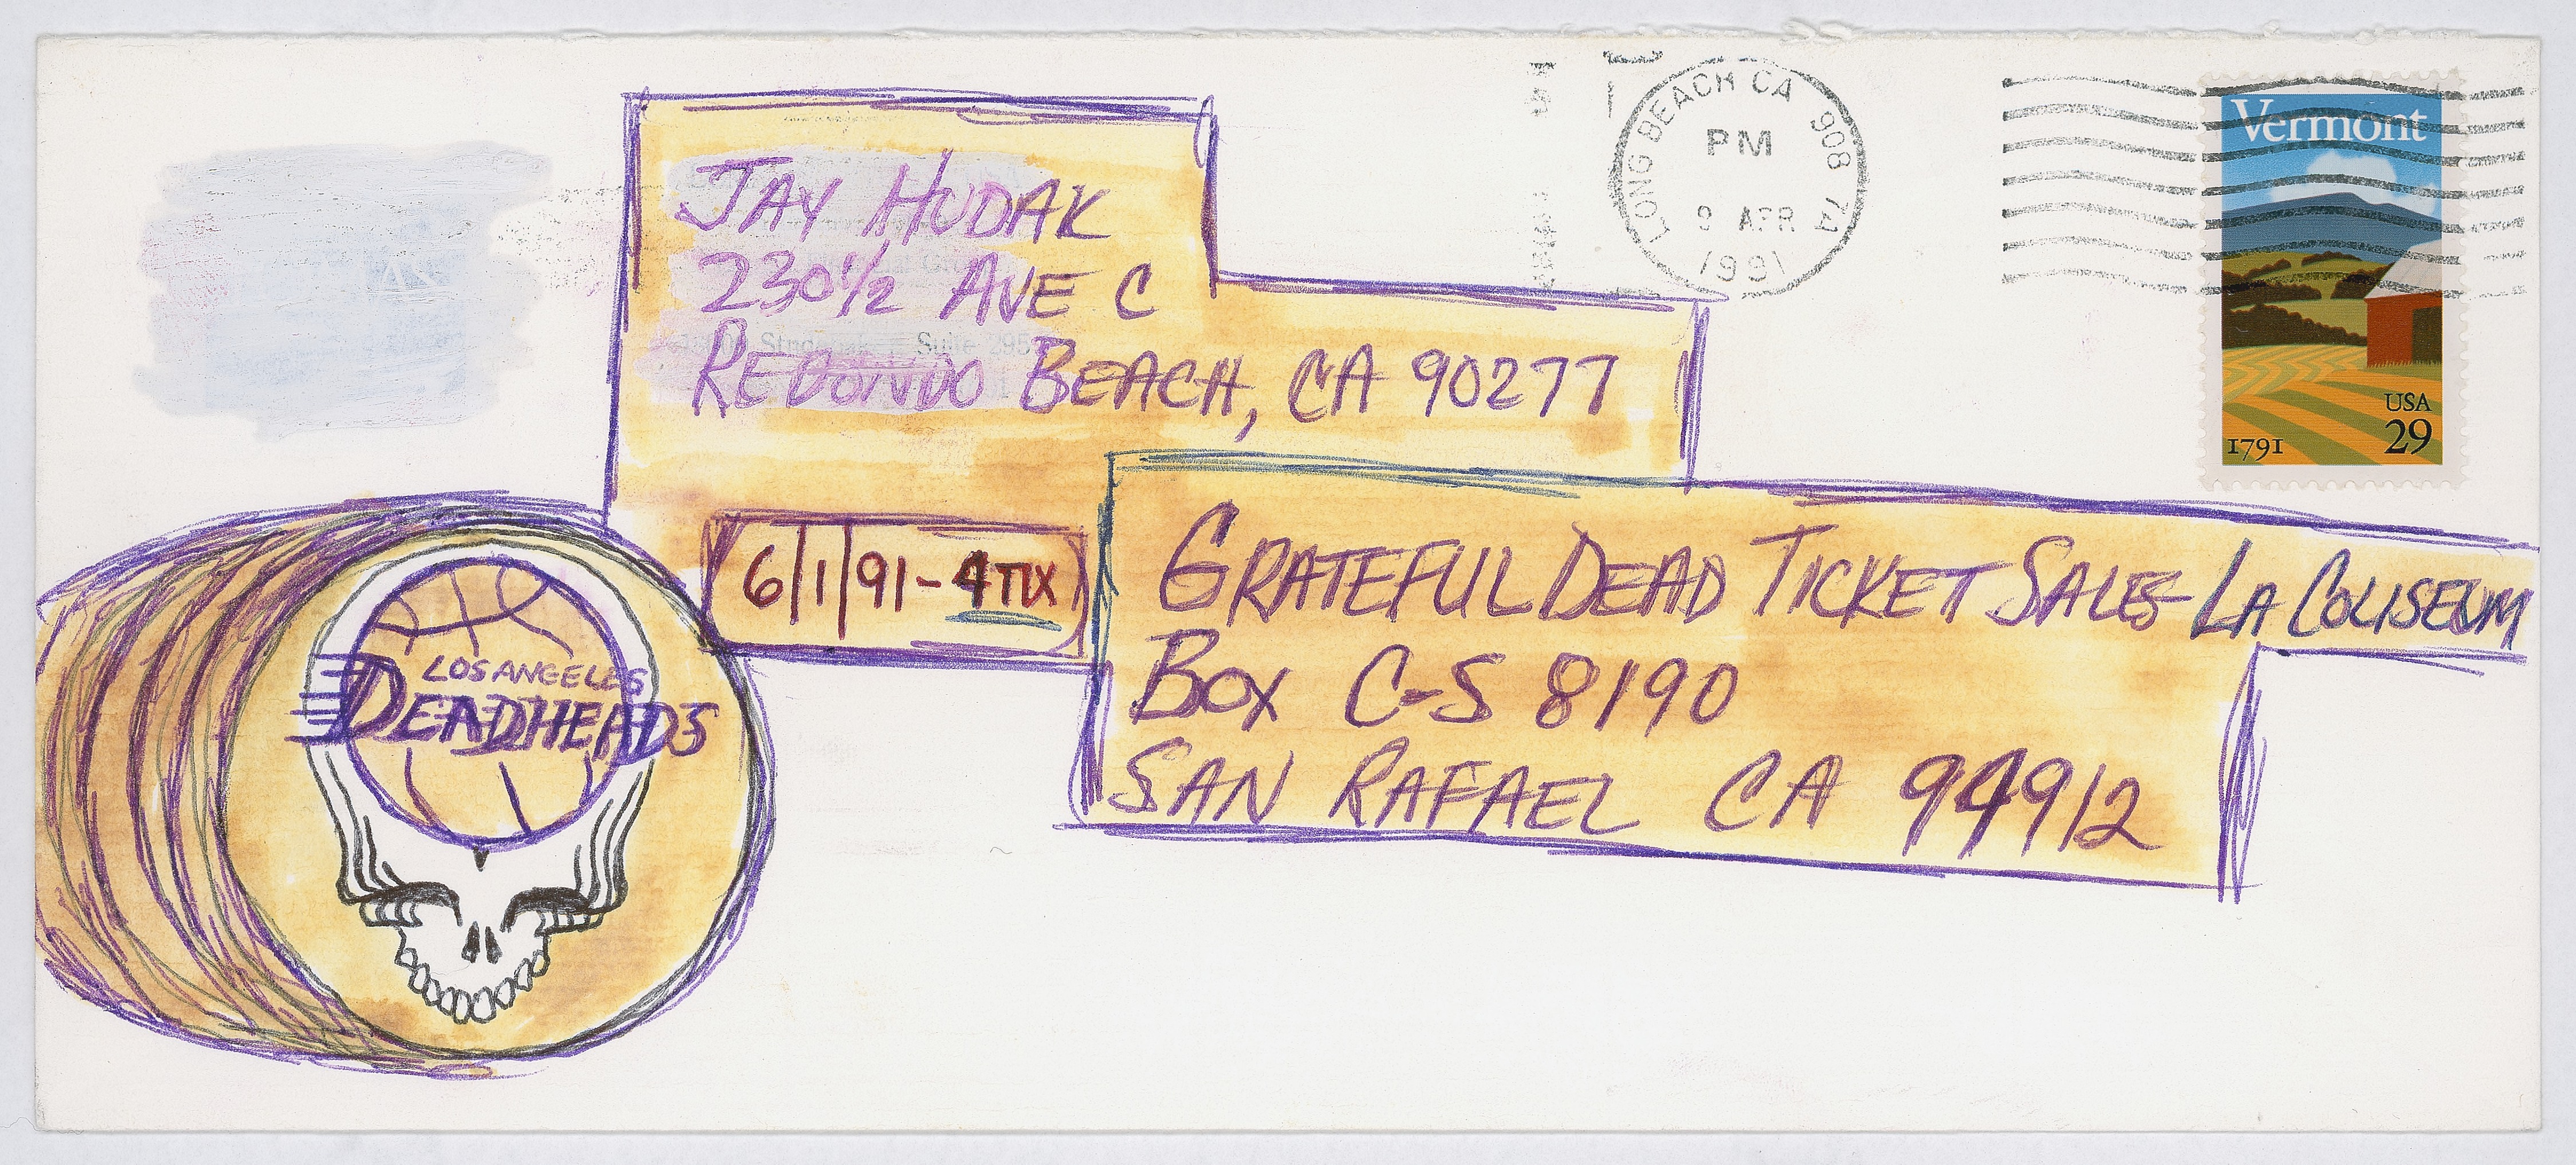 JAY HUDAK
230 1/2 AVE C
REDONDO BEACH, CA 90277
LONG BEACH CA 908
PM
9 APR
1991
Vermont
USA
29
1791
6/1/91-4TIX
GRATEFUL DEAD TICKET SALES-LA COLISEUM
BOX C-S 8190
SAN RAFAEL CA 94912
LOS ANGELES
DEADHEADS